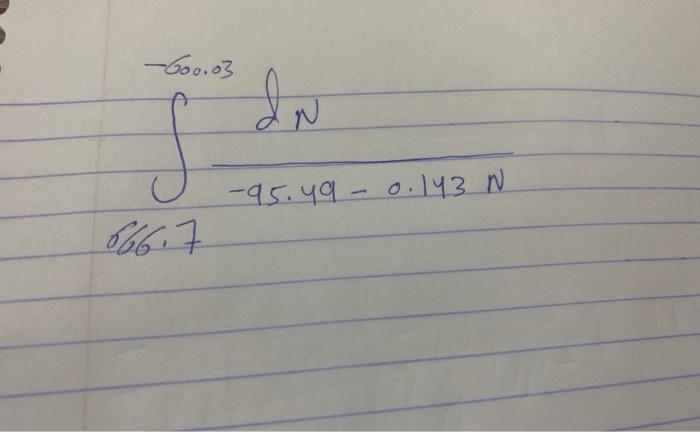 -600.03
∫ dN
-95.49 - 0.143 N
666.7